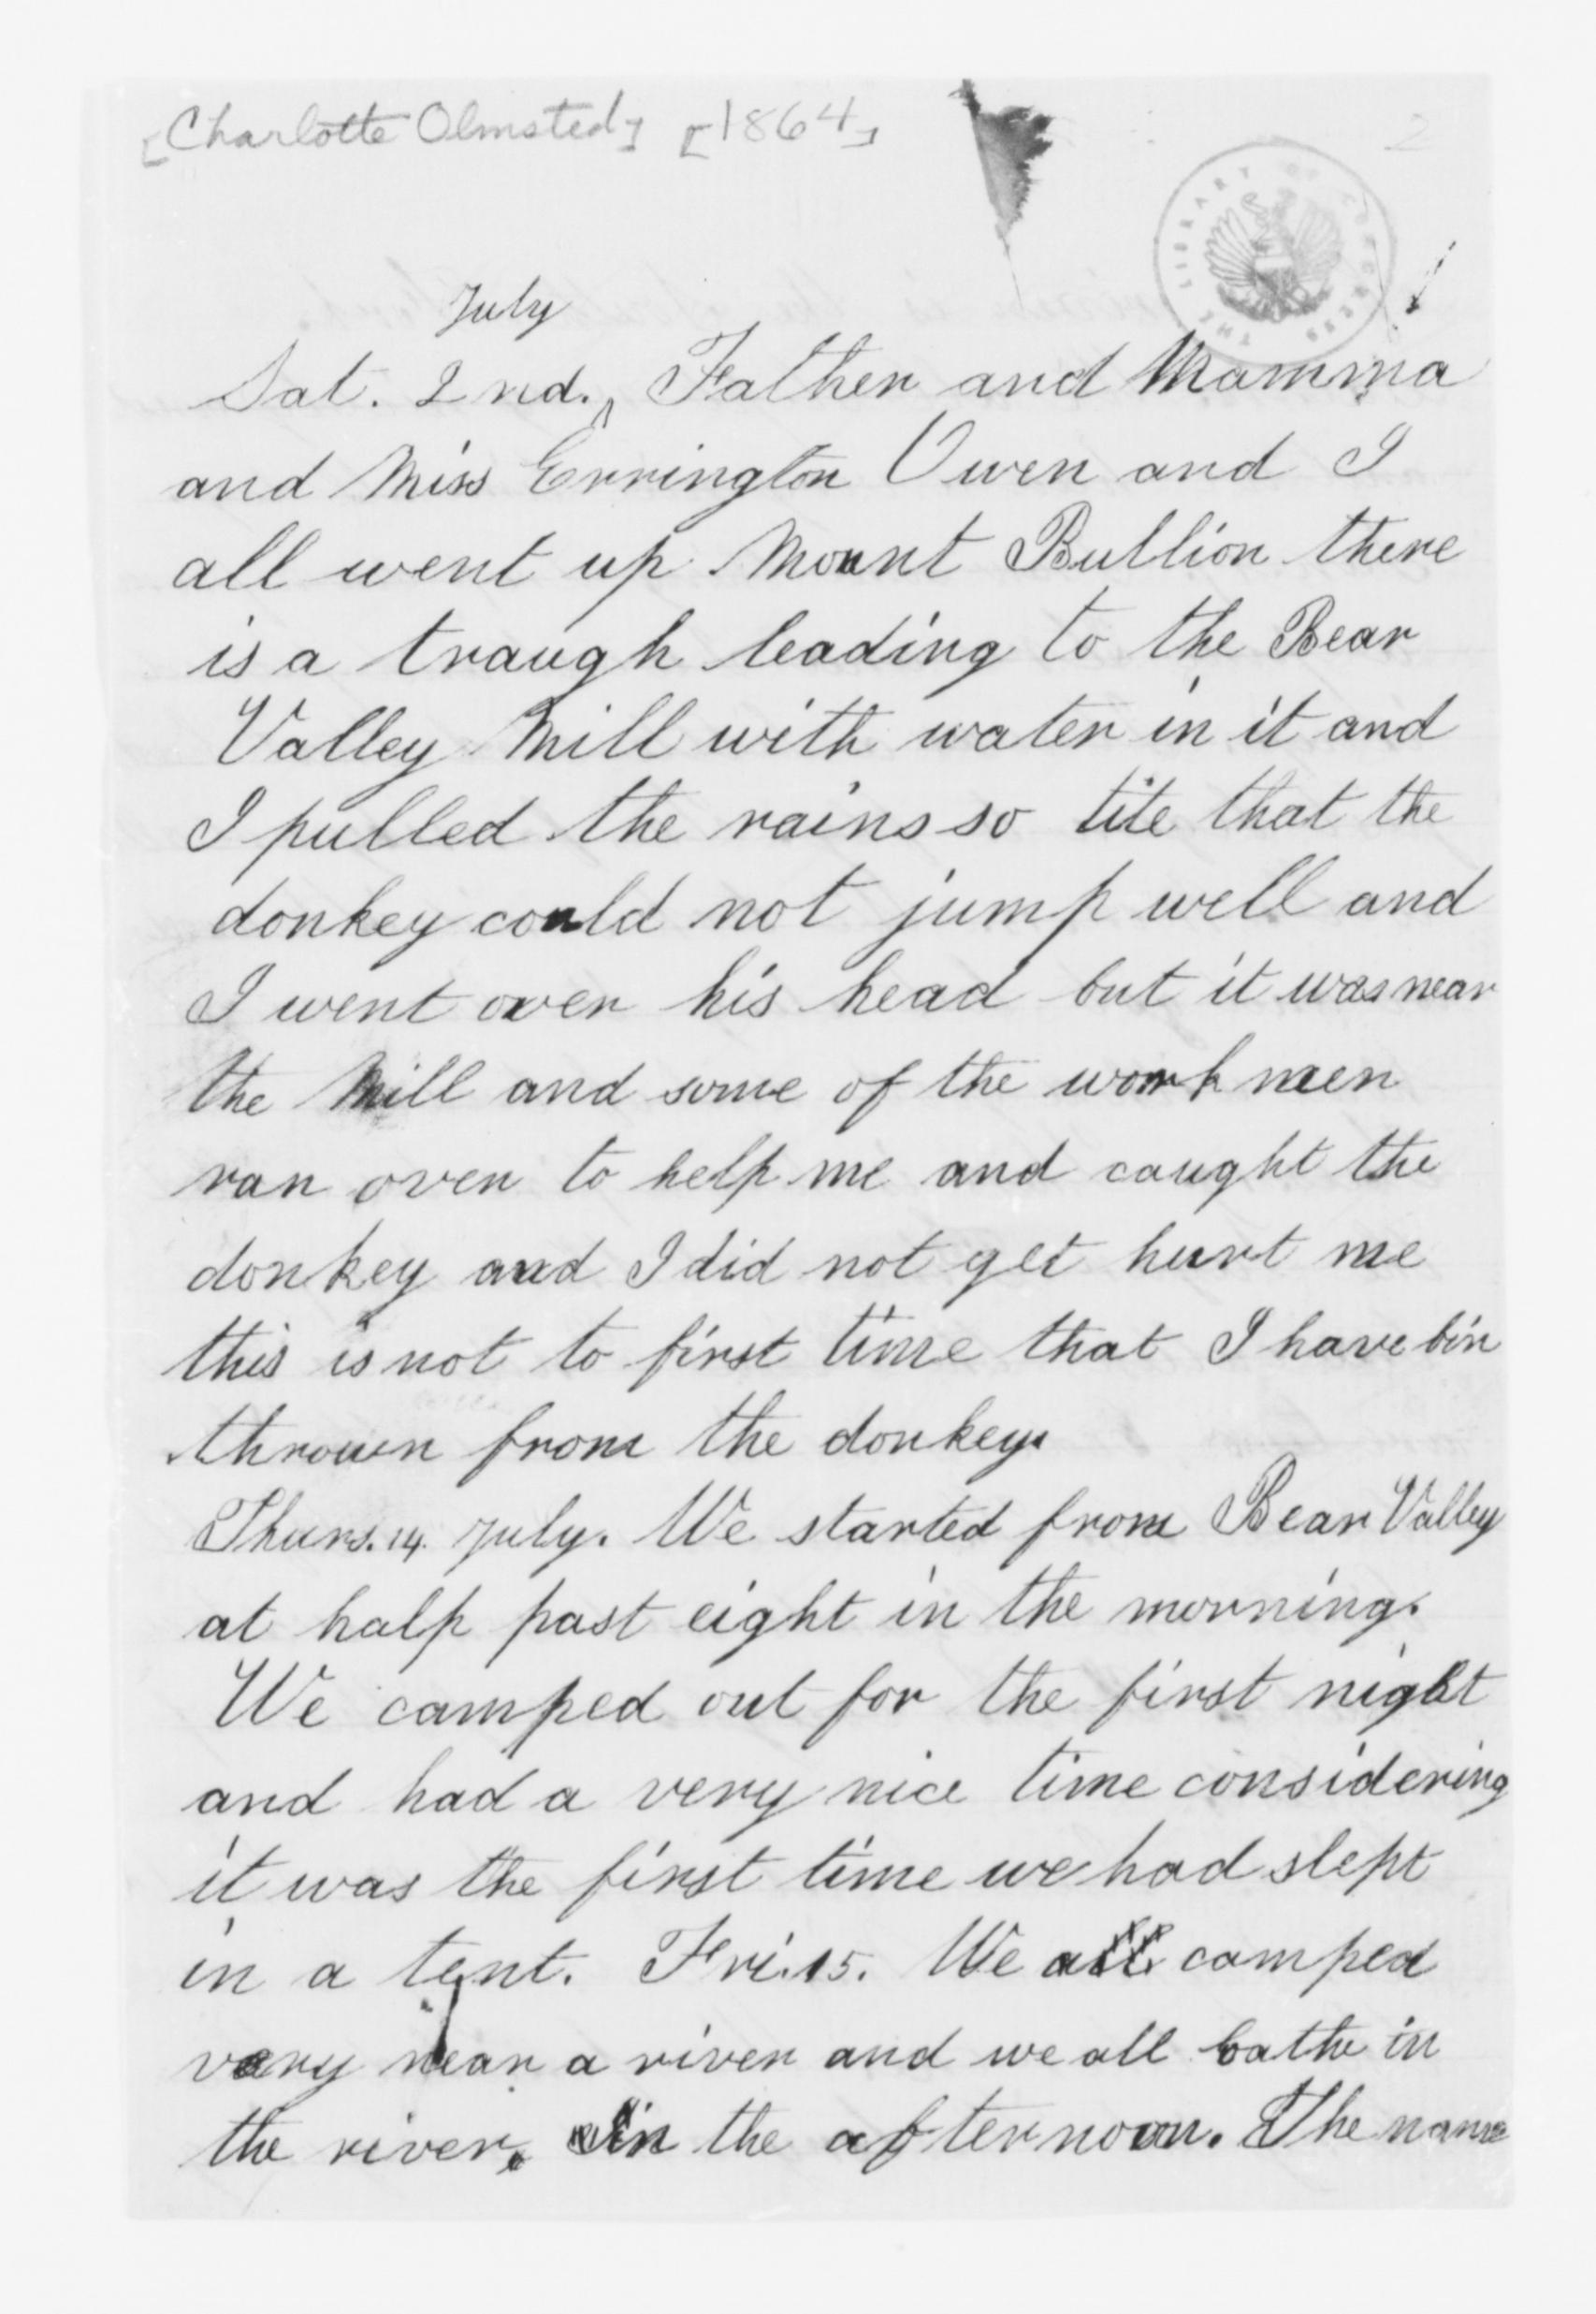 [Charlotte Olmsted] [1864]
2
THE LIBRARY OF CONGRESS
July
Sat. 2nd.^ Father and Mamma
and Miss Errington Owen and I
all went up Mount Bullion there
is a traugh leading to the Bear
Valley Mill with water in it and
I pulled the rains so tite that the
donkey could not jump well and
I went over his head but it was near
the Mill and some of the work men
ran over to help me and caught the
donkey and I did not get hurt me
this is not to first time that I have bin
thrown from the donkey.
Thurs. 14. July. We started from Bear Valley
at half past eight in the morning.
We camped out for the first night
and had a very nice time considering
it was the first time we had slept
in a tent. Fri. 15. We all camped
very near a river and we all bathe in
the river, in the afternoon. The name